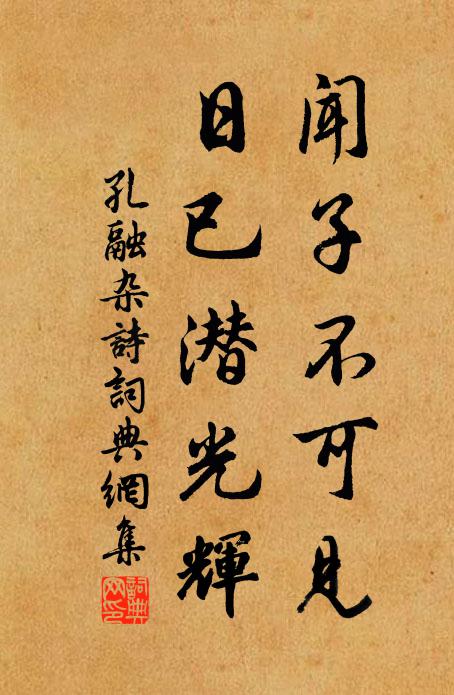 闻子不可见
日已潜光輝
孔融杂詩詞典網集
詞典
网印